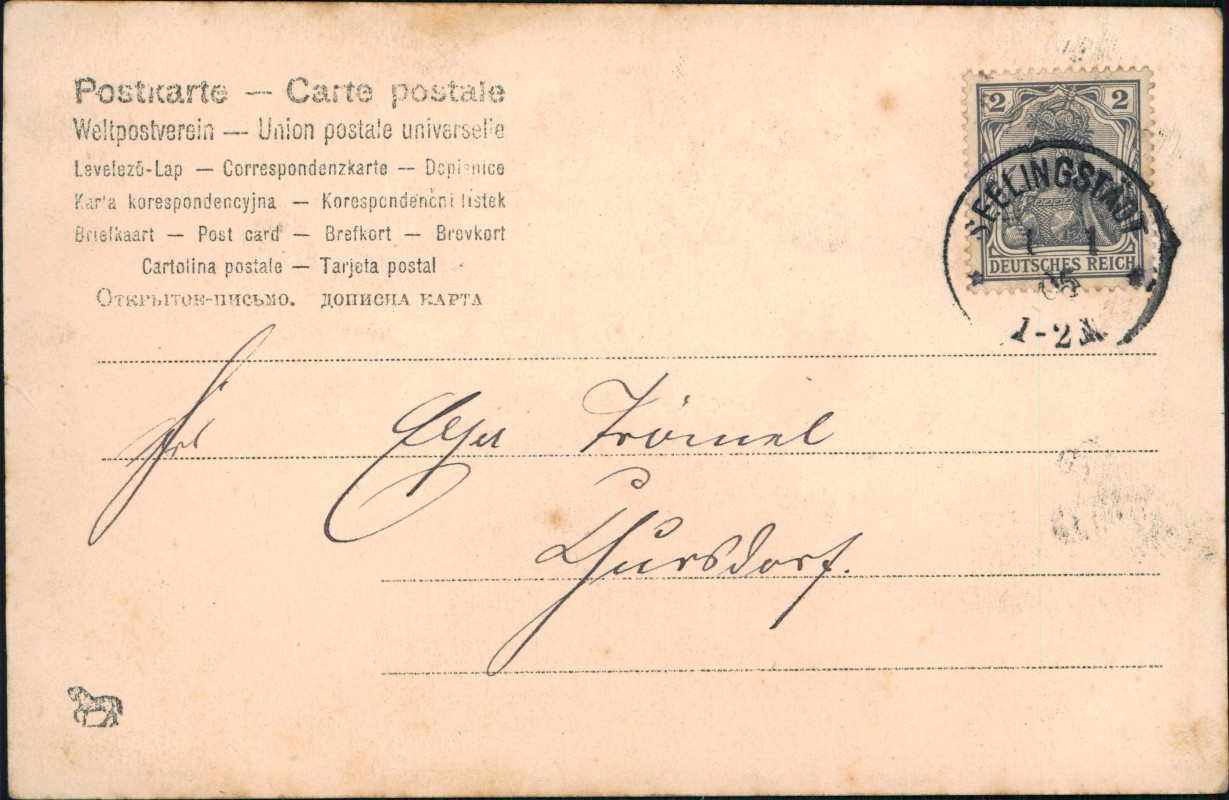 Postkarte — Carte postale
Weltpostverein — Union postale universelle
Levelező-Lap — Correspondenzkarte — Dopisnice
Karta korespondencyjna — Korespondenčni listek
Briefkaart — Post card — Brefkort — Brevkort
Cartolina postale — Tarjeta postal
Открытое-письмо. дописна карта
2 2
DEUTSCHES REICH
SEELINGSTÄDT
1 1
05
1-2N
Trömel